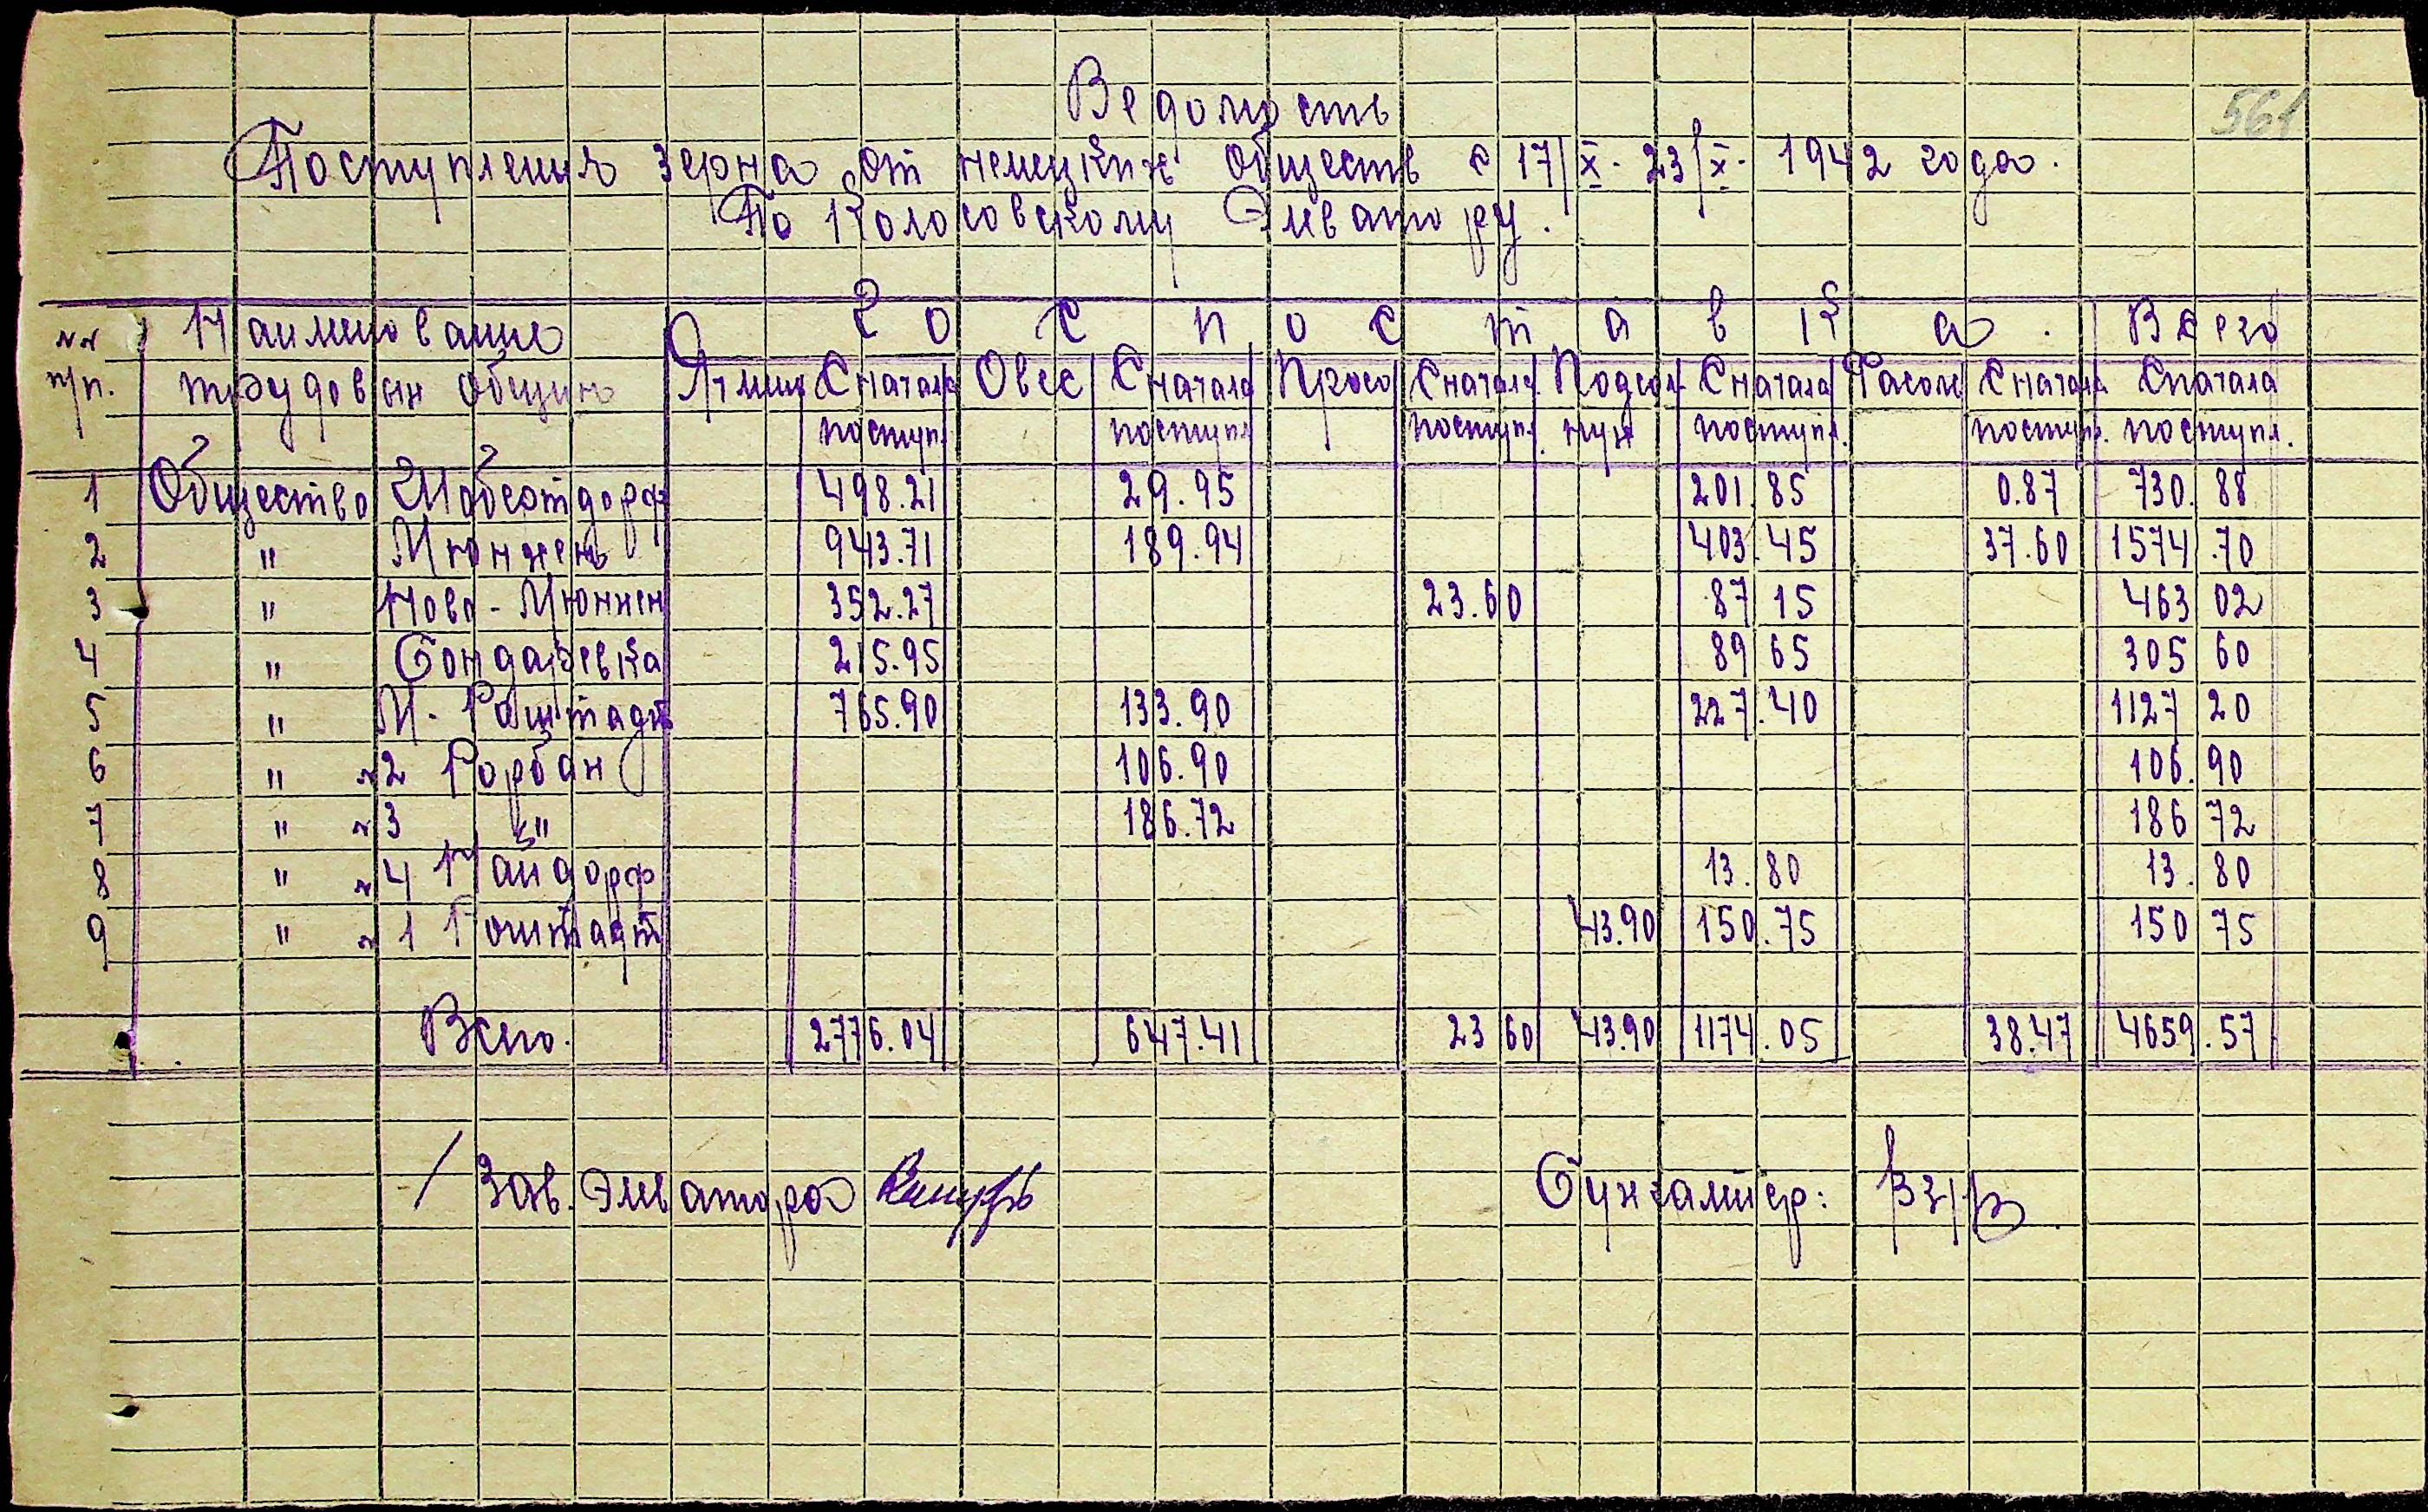 561
Ведомость
Поступления зерна от немецких обществ с 17/X - 23/X - 1942 года.
По Колосовскому Элеватору.
№№ Наименование Госпоставка. Всего
п/п. трудовых общин Ячмень Сначала Овес Сначала Просо Сначала Подсол Сначала Фасоль Сначала Сначала
поступ. поступл поступл. нух поступл. поступл. поступл.
1 Общество Шобсотдорф 498.21 29.95 201.85 0.87 730.88
2 " Мюнхень 943.71 189.94 403.45 37.60 1574.70
3 " Ново-Мюнхен 352.27 23.60 87 15 463 02
4 " Бондаревка 215.95 89 65 305 60
5 " М. Раштадт 765.90 133.90 227.40 1127 20
6 " №2 Горбан 106.90 106.90
7 " №3 " 186.72 186 72
8 " №4 Найдорф 13.80 13.80
9 " №1 Раштадт 43.90 150.75 150 75
Всего. 2776.04 647.41 23 60 43.90 1174.05 38.47 4659.57
/ Зав. Элеватора Бухгалтер: